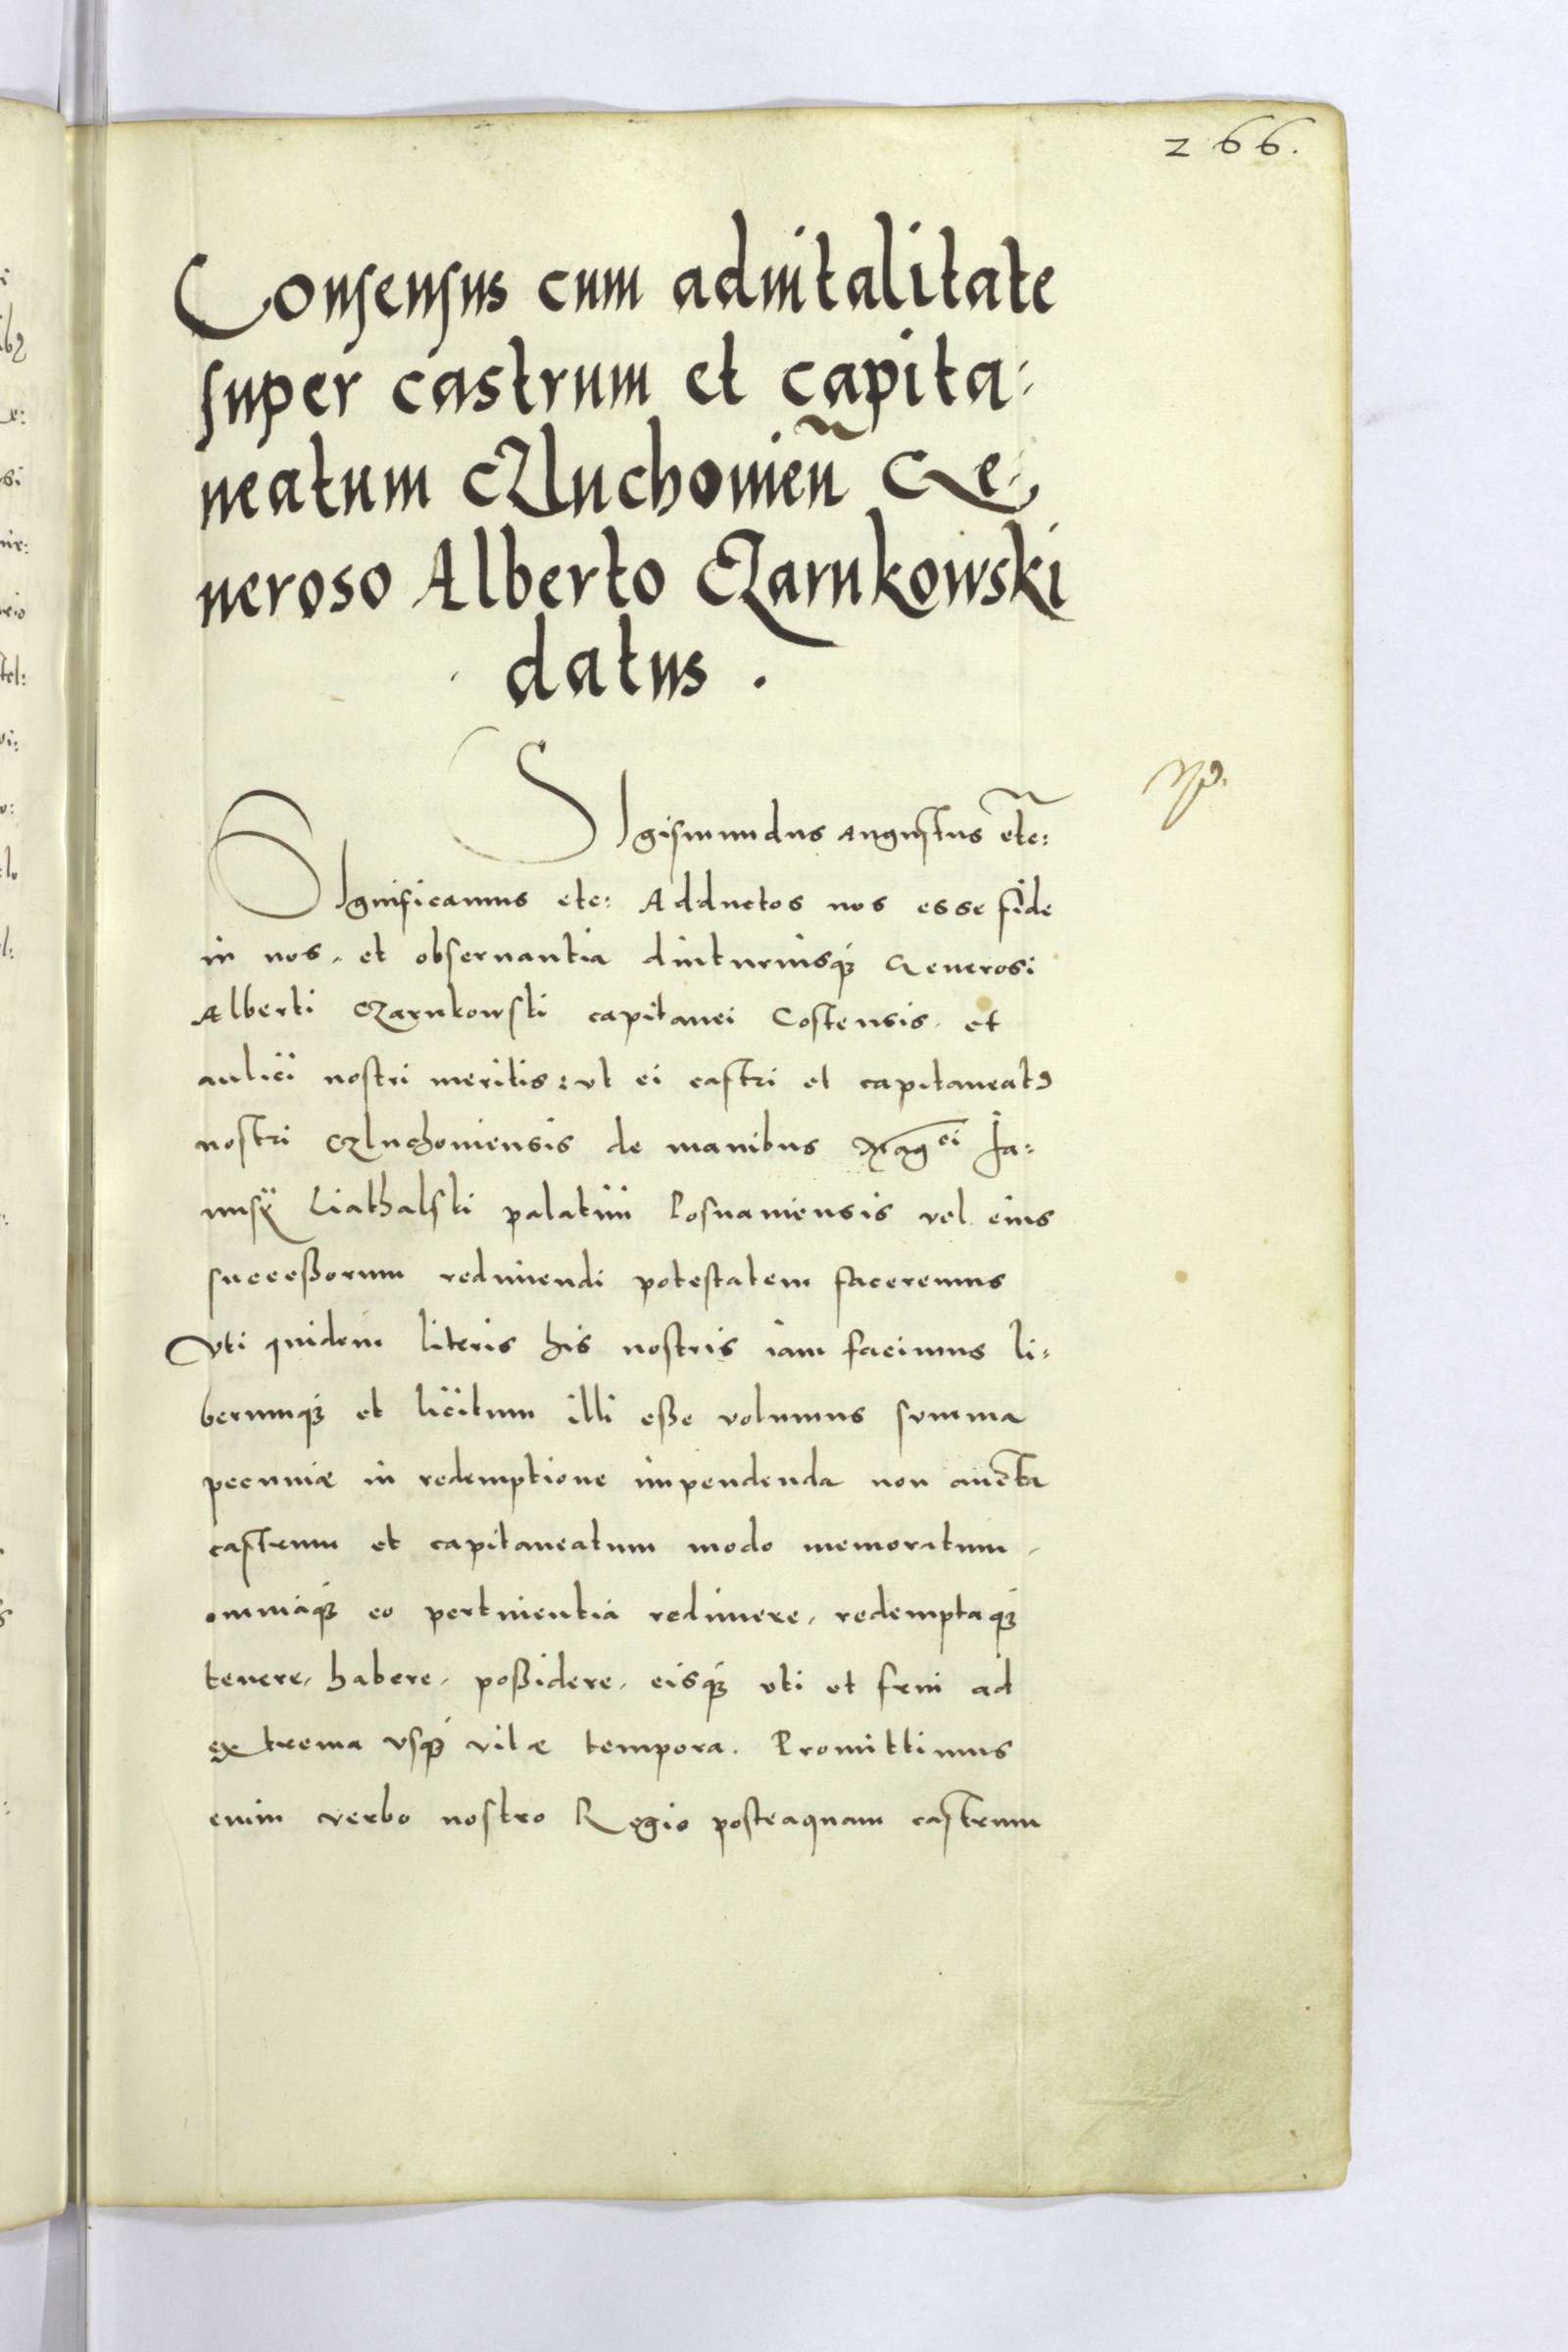 266.
Consensus cum aduitalitate
super castrum et capita:
neatum CZluchouien̄ Ge:
neroso Alberto CZarnkowski
datus.
SIgismundus augustus etc:
SIgnificamus etc: Adductos nos esse fide
in nos, et obseruantia diuturnisq́ꝫ Generosi
Alberti CZarnkowski capitanei Costensis, et
aulici nostri meritis: vt ei castri et capitaneatꝰ
nostri CZluchouiensis de manibus Mag͡ci Ja:
nusÿ Liathalski palatini Posnaniensis vel eius
successorum redimendi potestatem faceremus
Vti quidem literis his nostris iam facimus li:
berumq́ꝫ et licitum illi eße volumus summa
pecuniæ in redemptione impendenda non aucta
castrum et capitaneatum modo memoratum,
omniaq́ꝫ eo pertinentia redimere, redemptaq́ꝫ
tenere, habere, poßidere, eisq́ꝫ vti et frui ad
extrema vsq́ꝫ vitæ tempora. Promittimus
enim verbo nostro Regio posteaquam castrum